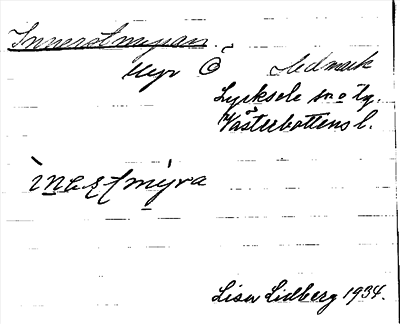 Innerstmyran
Myr Ö Sedmark
Lycksele sn o tg.
Västerbottens l.
Lisa Lidberg 1934.